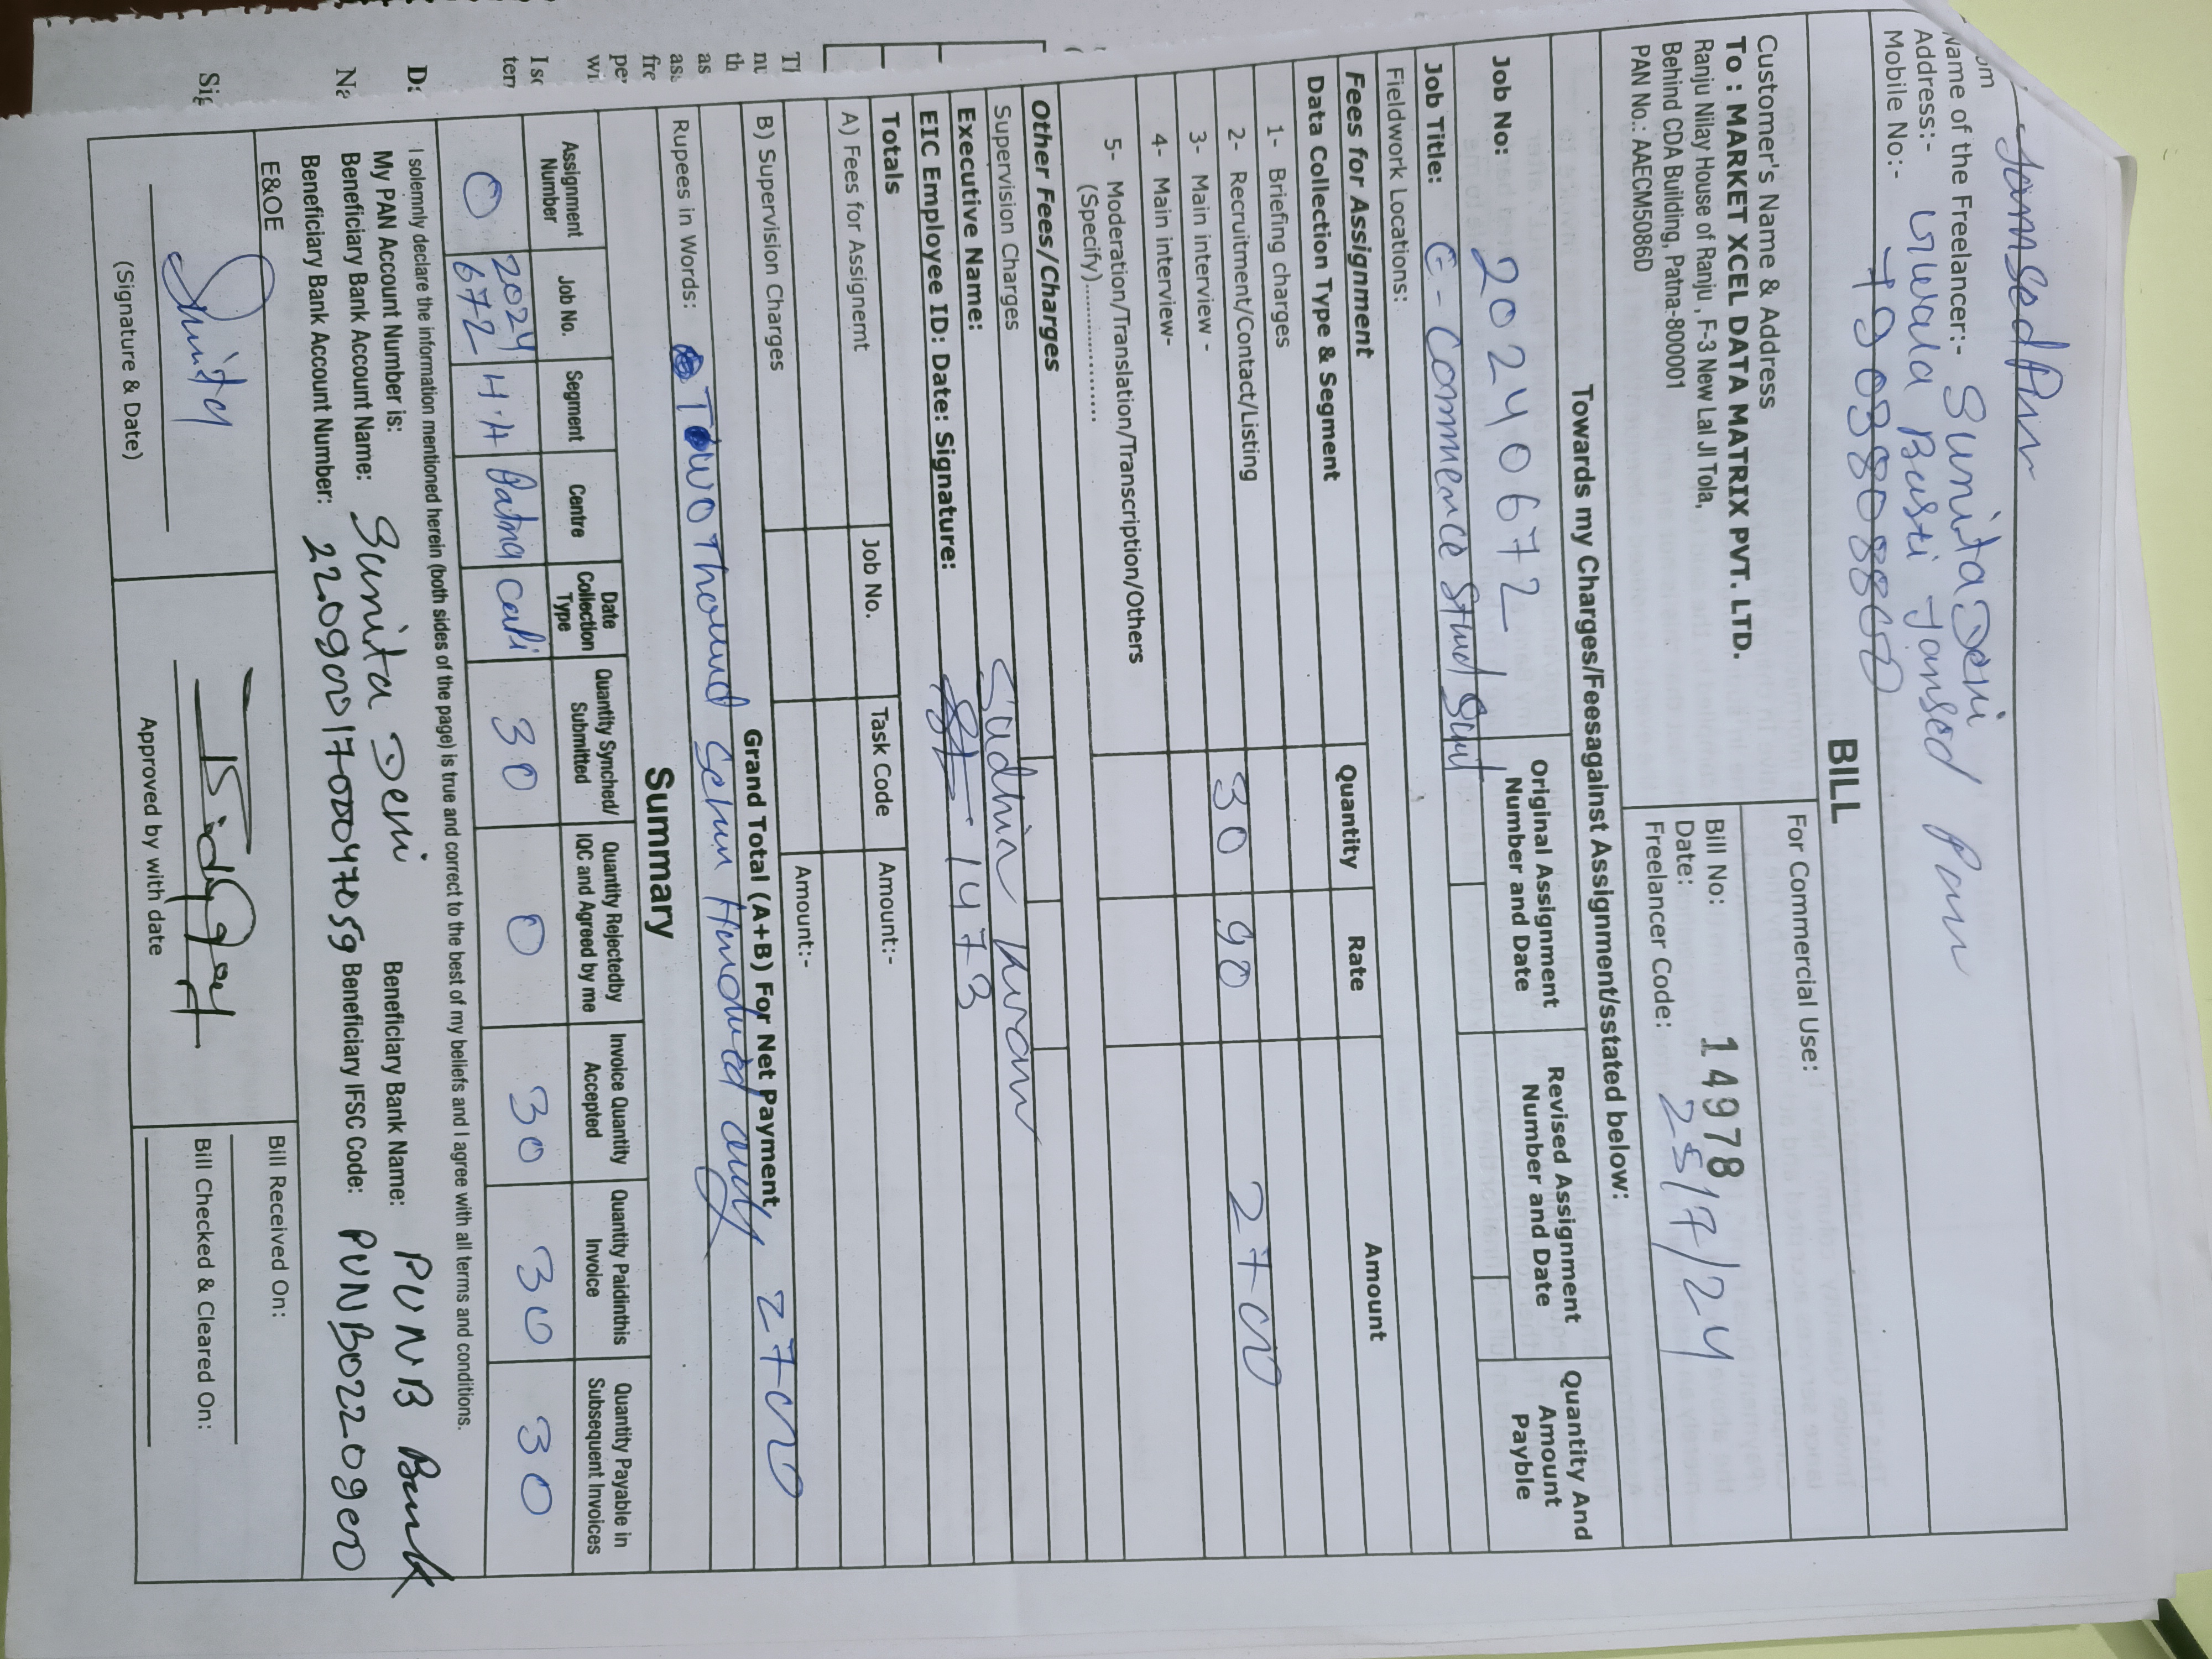 Jamsed Pur
om
Name of the Freelancer:- Sunita Devi
Address:- Gwala Basti Jamsed Pur
Mobile No:-
BILL
Customer's Name & Address
To : MARKET XCEL DATA MATRIX PVT. LTD.
Ranju Nilay House of Ranju , F-3 New Lal JI Tola,
Behind CDA Building, Patna-800001
PAN No.: AAECM5086D
For Commercial Use:
Bill No: 14978
Date: 25/7/24
Freelancer Code:
Towards my Charges/Feesagainst Assignment/sstated below:
Job No: 20240672
Original Assignment Number and Date
Revised Assignment Number and Date
Quantity And Amount Payble
Job Title: E-Commence Stud
Fieldwork Locations:
Fees for Assignment
Data Collection Type & Segment Quantity Rate Amount
1- Briefing charges
2- Recruitment/Contact/Listing 30 90 2700
3- Main interview -
4- Main interview-
5- Moderation/Translation/Transcription/Others
(Specify)..................
Other Fees/Charges
Supervision Charges
Executive Name: Sudhir Kiran
EIC Employee ID: Date: Signature: 1473
Totals Job No. Task Code Amount:-
A) Fees for Assignemt
Amount:-
B) Supervision Charges
Grand Total (A+B) For Net Payment 2700
Rupees in Words: Two Thound Sehun Hundred only
Summary
Assignment Number Job No. Segment Centre Date Collection Type Quantity Synched/ Submitted Quantity Rejectedby IQC and Agreed by me Invoice Quantity Accepted Quantity Paidinthis Invoice Quantity Payable in Subsequent Invoices
0 2024 672 H.H Patna Capi 30 0 30 30 30
I solemnly declare the information mentioned herein (both sides of the page) is true and correct to the best of my beliefs and I agree with all terms and conditions.
My PAN Account Number is:
Beneficiary Bank Account Name: Sunita Devi Beneficiary Bank Name: PUNB Bank
Beneficiary Bank Account Number: 2209001700047059 Beneficiary IFSC Code: PUNB0220900
E&OE
Sunita
(Signature & Date)
Approved by with date
Bill Received On:
Bill Checked & Cleared On: